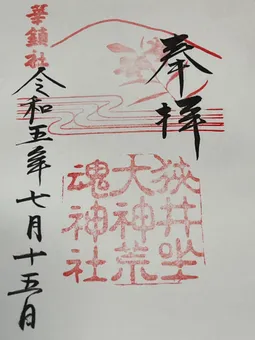 奉拝
狭井坐
大神荒
魂神社
華鎮社
令和五年七月十五日